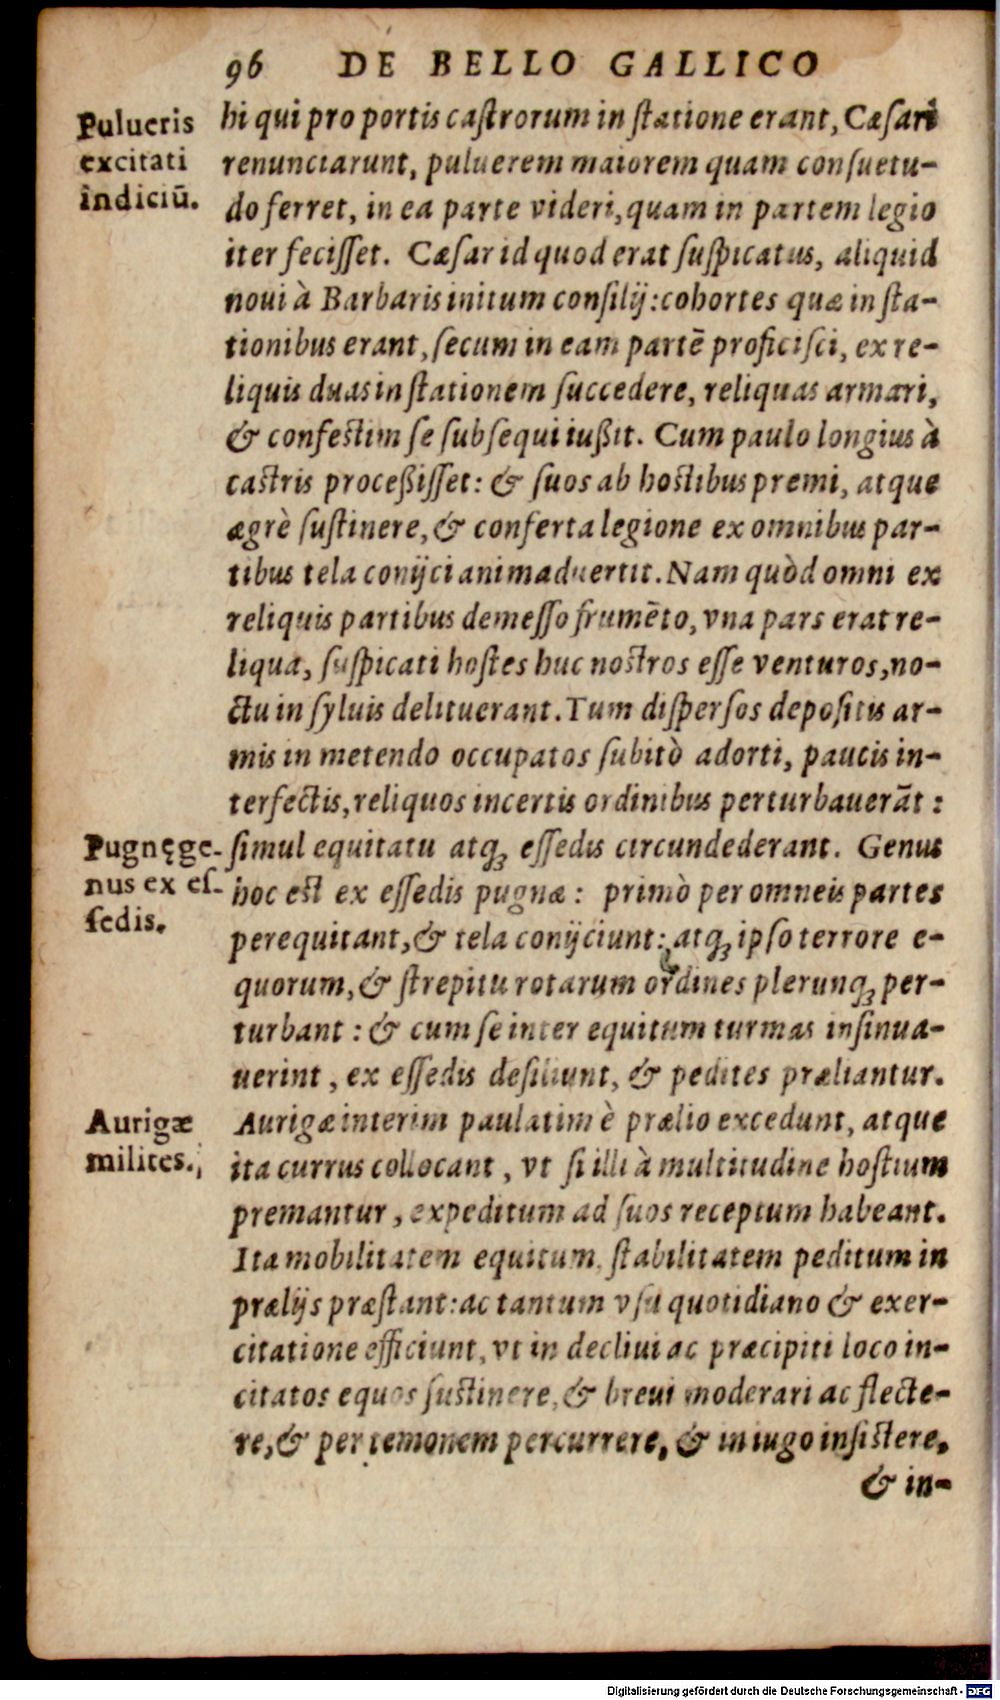 96 DE BELLO GALLICO
Pulueris
excitati
indiciū.
hi qui pro portis castrorum in statione erant, Cæsari
renunciarunt, puluerem maiorem quam consuetu-
do ferret, in ea parte videri, quam in partem legio
iter fecisset. Cæsar id quod erat suspicatus, aliquid
noui à Barbaris initum consilij: cohortes quæ in sta-
tionibus erant, secum in eam partē proficisci, ex re-
liquis duas in stationem succedere, reliquas armari,
& confestim se subsequi iußit. Cum paulo longius à
castris proceßisset: & suos ab hostibus premi, atque
ægrè sustinere, & conferta legione ex omnibus par-
tibus tela conijci animaduertit. Nam quòd omni ex
reliquis partibus demesso frumēto, vna pars erat re-
liqua, suspicati hostes huc nostros esse venturos, no-
ctu in syluis delituerant. Tum dispersos depositis ar-
mis in metendo occupatos subitò adorti, paucis in-
terfectis, reliquos incertis ordinibus perturbauerāt:
Pugnęge-
nus ex es-
sedis.
simul equitatu atq; essedis circundederant. Genus
hoc est ex essedis pugnæ: primò per omneis partes
perequitant, & tela conijciunt: atq; ipso terrore e-
quorum, & strepitu rotarum ordines plerunq; per-
turbant: & cum se inter equitum turmas insinua-
uerint, ex essedis desiliunt, & pedites præliantur.
Aurigæ
milites.
Aurigæ interim paulatim è prælio excedunt, atque
ita currus collocant, vt si illi à multitudine hostium
premantur, expeditum ad suos receptum habeant.
Ita mobilitatem equitum, stabilitatem peditum in
prælijs præstant: ac tantum vsu quotidiano & exer-
citatione efficiunt, vt in decliui ac præcipiti loco in-
citatos equos sustinere, & breui moderari ac flecte-
re, & per temonem percurrere, & in iugo insistere,
& in-
Digitalisierung gefördert durch die Deutsche Forschungsgemeinschaft - DFG